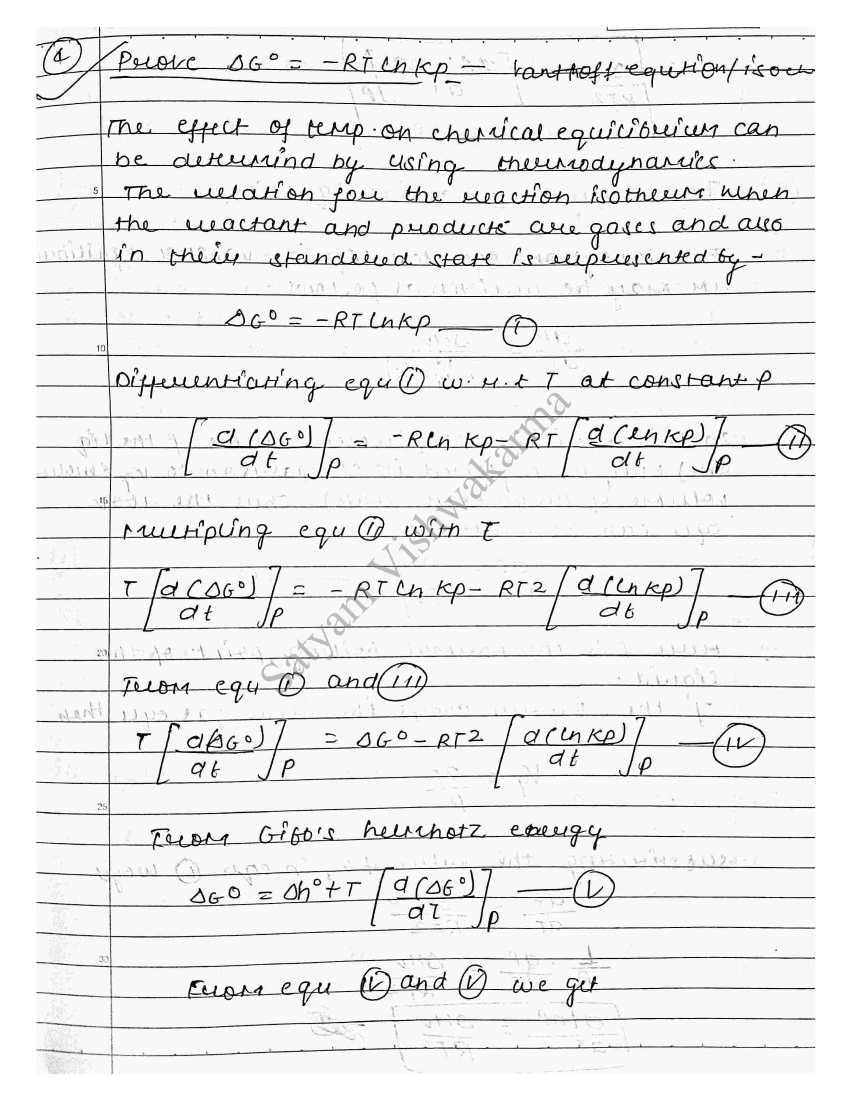 4 Prove ΔG° = -RT ln Kp — Vanthoff eqution/isoch
The effect of temp. on chemical equilibrium can
be determind by using thermodynamics.
5 The relation for the reaction isotherm when
the reactant and products are gases and also
in their standered state is represented by -
ΔG° = -RT ln Kp — (i)
10
Differentiating equ (i) w.r.t T at constant P
[d(ΔG°)/dt]P = -R ln Kp - RT [d(ln Kp)/dt]P — (ii)
15
Multipling equ (ii) with T
T [d(ΔG°)/dt]P = -RT ln Kp - RT2 [d(ln Kp)/dt]P — (iii)
20
From equ (i) and (iii)
T [d(ΔG°)/dt]P = ΔG° - RT2 [d(ln Kp)/dt]P — (iv)
25
From Gibb's helmhotz energy
ΔG° = Δh° + T [d(ΔG°)/dT]P — (v)
30
From equ (iv) and (v) we get
Satyam Vishwakarma